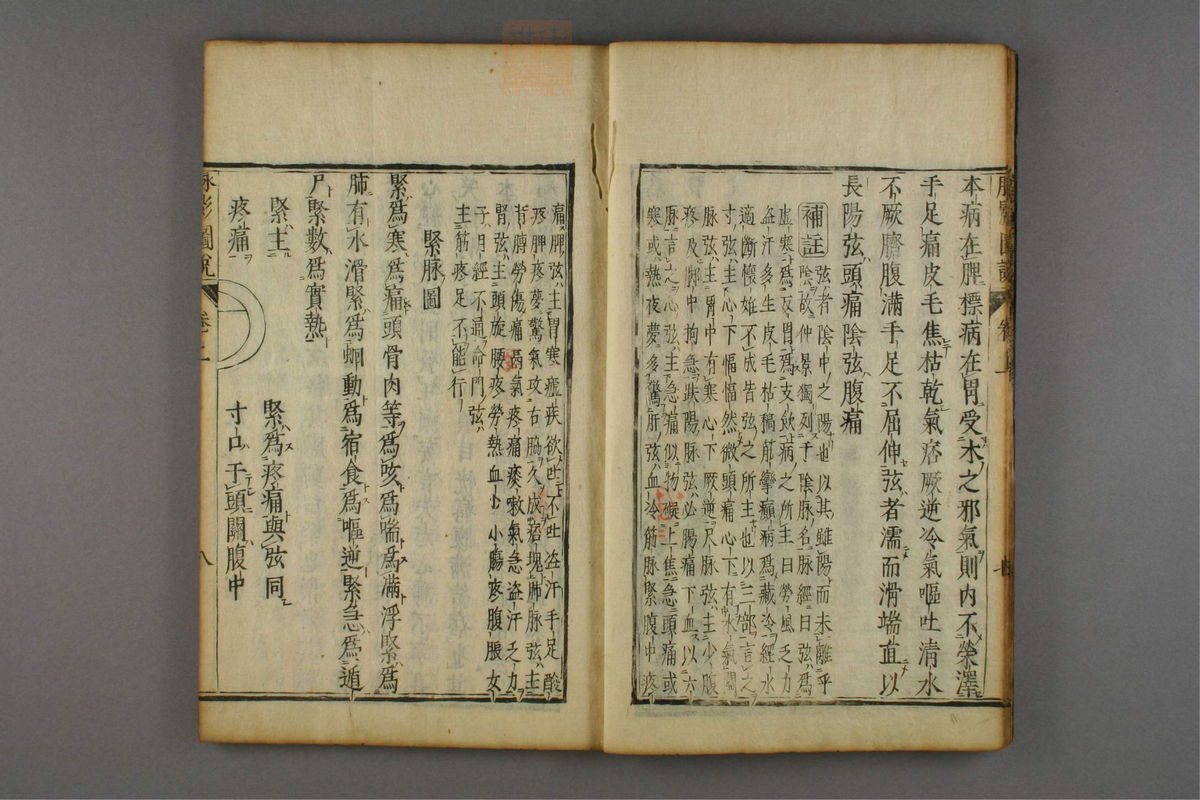 本病在脾標病在胃受木之邪氣則内不榮澤
手足痛皮毛焦枯乾氣痞厥逆冷氣嘔吐清水
不厥臍腹滿手足不屈伸弦者濡而滑端直以
長陽弦頭痛陰弦腹痛
補註
弦者陰中之陽也以其雖陽而未離乎
陰故仲景獨列于陰脉名脉經曰弦爲
虛寒爲反胃爲支飲病之所主曰勞風乏力
盜汗多生皮毛枯稿筋攣癲病爲藏冷經水
適斷懷妊不成皆弦之所主也以三部言之
寸弦主心下愊愊然微頭痛心下有水氣關
脉弦主胃中有寒心下厥逆尺脉弦主少腹
疼及脚中拘急趺陽脉弦必腸痛下血以六
脉言之心弦主急痛似物礙上焦急頭痛或
寒或熱夜夢多驚肝弦血冷筋脉緊腹中疼
痛脾弦主胃寒瘧疾欲吐不吐盜汗手足酸
疼脾疼夢驚氣攻右脇久成痞塊肺脉弦主
背膊勞傷痛鬲氣疼痛痰嗽氣急盜汗乏力
腎弦主頭旋腰疼勞熱血卜小腸疼腹脹女
子月經不通命門弦
主筋疼足不能行
緊脉圖
緊爲寒爲痛頭骨肉等爲咳爲喘爲滿浮緊爲
肺有水滑緊爲蛔動爲宿食爲嘔逆緊急爲遁
尸緊數爲實熱
緊主
疼痛
緊爲疼痛與弦同
寸口于頭關腹中
八